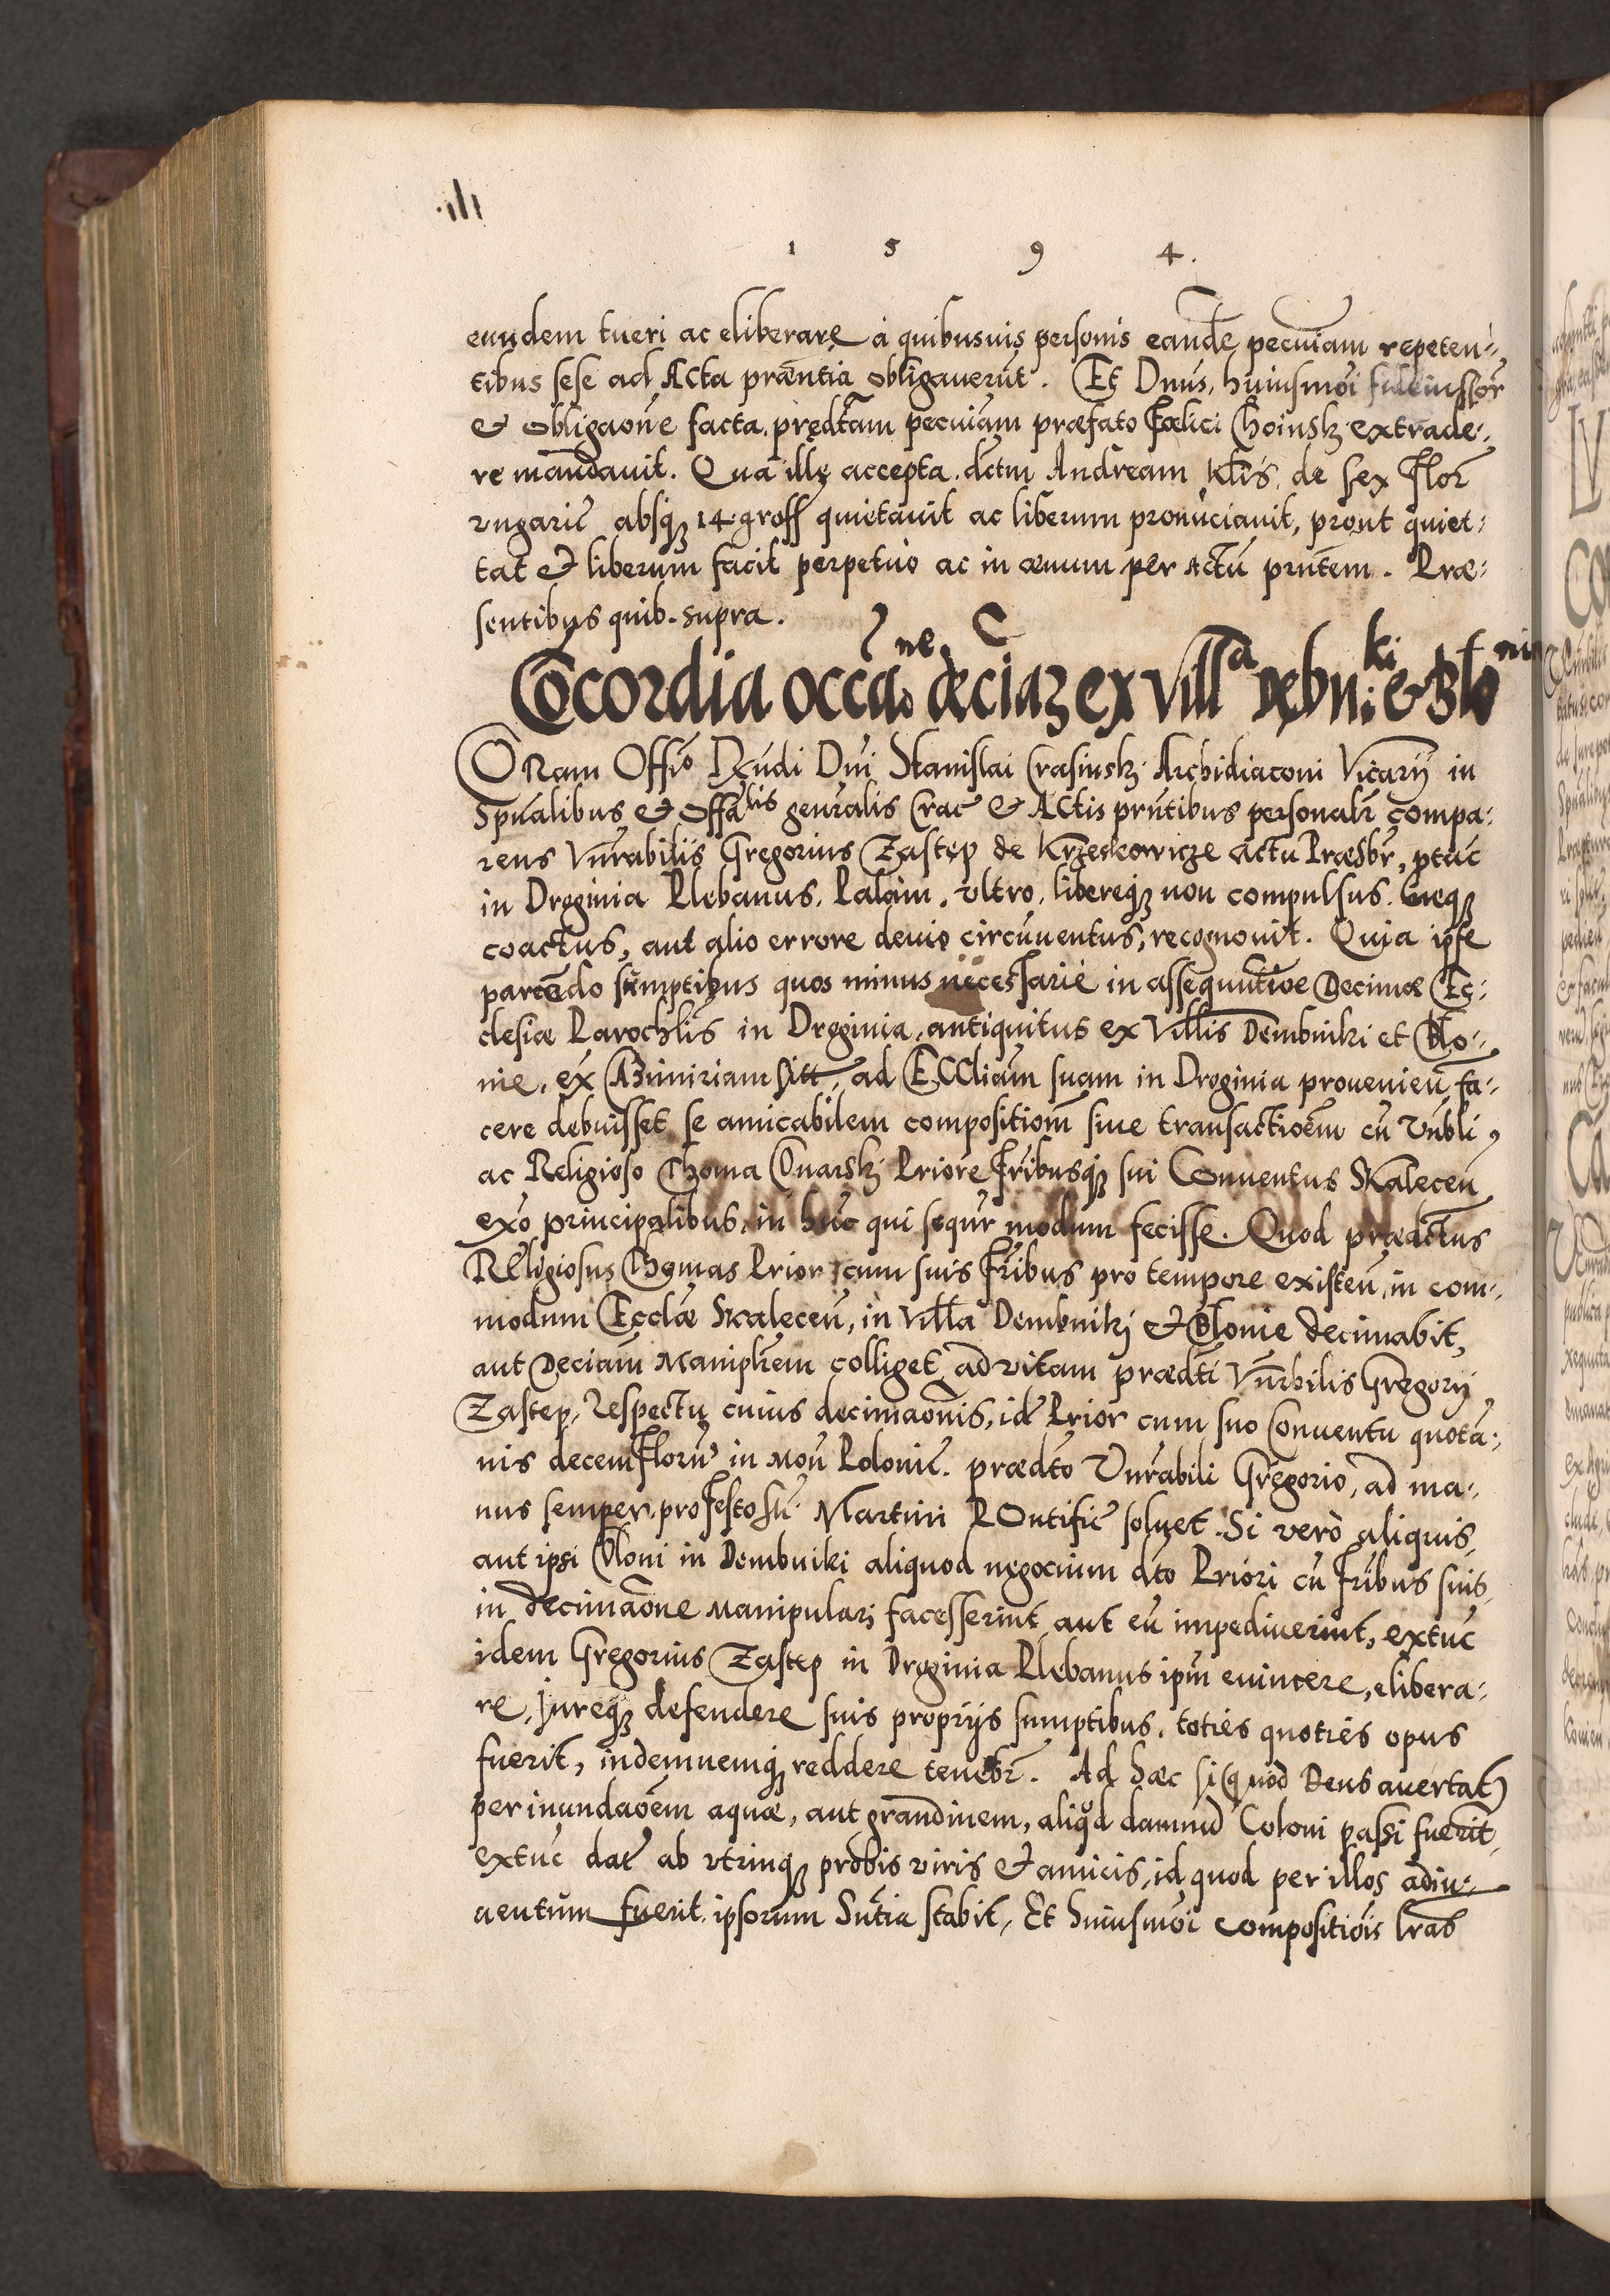 1 5 9 4.
eundem tueri ac eliberare à quibusuis personis eandē pecuīam repeten⸗
tibus sese ad Acta præntia obligauerūt. Et Dnus, huiusmōi fideiussor̄
& obligaōne facta, prędc̄tam pecuīam præfato Fœlici Choinsk: extrade⸗
re mandauit. Qua illę accepta. dc̄tm Andream Kt̄is. de sex Flor̄
vngaric̄ absq̨ 14 groſſ quietauit ac liberum pronūciauit, prout quiet⸗
tat & liberum facit perpetuò ac in æuum per Actū pn̄tem. Præ⸗
sentibus quib. supra.
Cōcordia occāōne deciāꝝ ex villa Dębniki & Błonia
CORam Offō Rx̄ndi Dn̄i Stanislai Crasinsk: Archidiaconi Vicarij in
Spūalibus & Offālis genrālis Crac̄ & Actis pn̄tibus personalr̄ compa⸗
rens Vnrābilis Gregorius Zastęp de Krzęckowicze actu Præsbr̄, ptūc
in Droginia Plebanus, Palàm, vltro, libereq̨ non compulsus, neq̨
coactus, aut alio errore deuio circūuentus, recognouit. Quia ipse
parcēdo sumptibus quos minus necessariè in assequut̄ioe Decimæ Ec⸗
clesiæ Parochlis in Droginia, antiquitus ex Villis Dembniki et Blo⸗
nie, ex ad Ecc̄liam suam in Droginia prouenien̄ fa⸗
cere debuisset, se amicabilem compositiom̄ siue transactioēm cū Vn̄bli
ac Religioso Thoma Priore Fr̄ibusq̨ sui Conuentus Skalecen̄
exō principalibus, in hūc qui sequr̄ modum fecisse. Quod prædc̄tus
Religiosus Thomas Prior cum suis Fr̄ibus pro tempore existen̄, in com⸗
modum Eccl̄æ Skalecen̄, in Villa Dembniki & Blonie decimabit,
aut Deciam̄ Maniplr̄em colliget, ad vitam prædc̄ti Vnr̄bilis Gregorij
Zastęp, Respectu cuius decimaōnis, idē Prior cum suo Conuentu quotā⸗
nis decem Floren̄ in Mon̄ Polonic̄. prædc̄to Vnrābili Gregorio, ad ma⸗
nus semper, pro Festo Sti. Martini POntific̄ soluet. Si verò aliquis,
aut ipsi Cloni in Dembniki aliquod negocium dc̄to Priori cū Fr̄ibus suis,
in decimaōne Manipulari facesserint, aut eū impediuerint, extūc
idem Gregorius Zastęp in Droginia Plebanus ipm̄ euincere, elibera⸗
re, jureq̨ defendere suis proprijs sumptibus, toties quoties opus
fuerit, indemnemq̨ reddere tenebr̄. Ad hæc si (quod Deus auertat)
per inundaōem aquæ, aut grandinem, aliqd damnū Coloni passi fuerit,
extūc dat̄ ab vtrinq̨ probis viris & amicis, id quod per illos adiu⸗
uentum fuerit ipsorum Sn̄tia stabit, Et huiusmōi compositiōis lrās